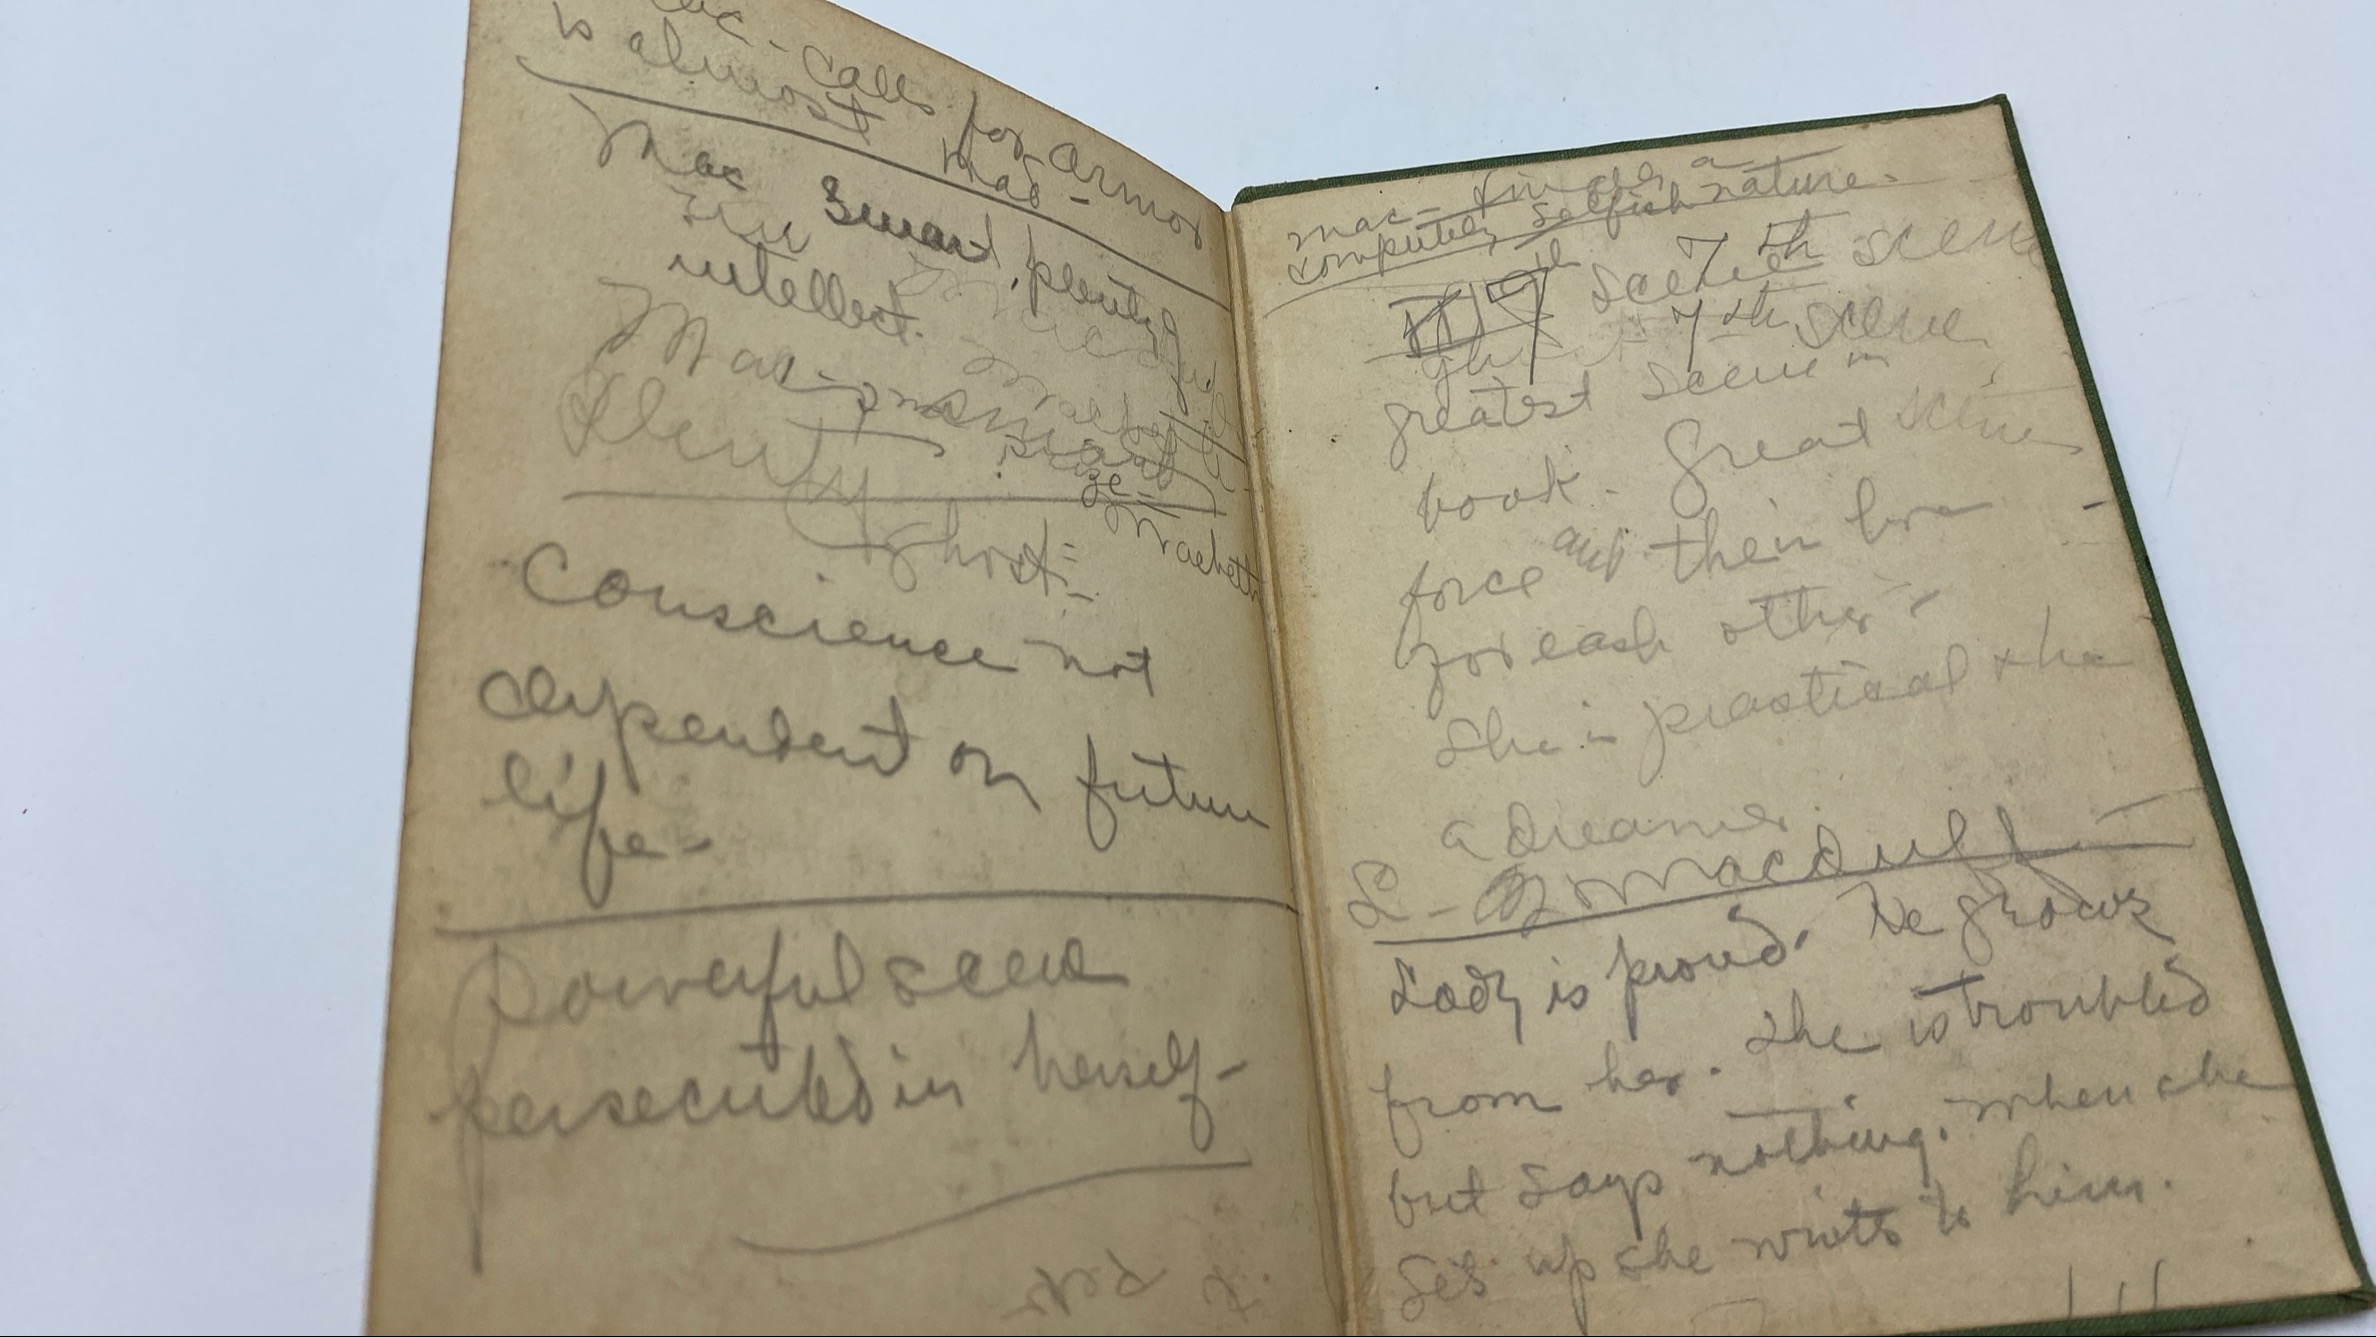 Mac - Calls for armor
is almost mad -
Mac Smart, plenty of
intellect.
Mac -
Smart
Plenty
Macbeth
Ghost -
Conscience not
dependent on future
life -
Powerful scene
persecuted in herself -
Mac -
selfish nature.
7th scene
7th scene
greatest scene in
book. Great
force and their love
for each other -
She is practical & he
a dreamer.
L - Macduff
Lady is proud. He grows
from her. She is troubled
but says nothing. When she
gets up she writes to him.